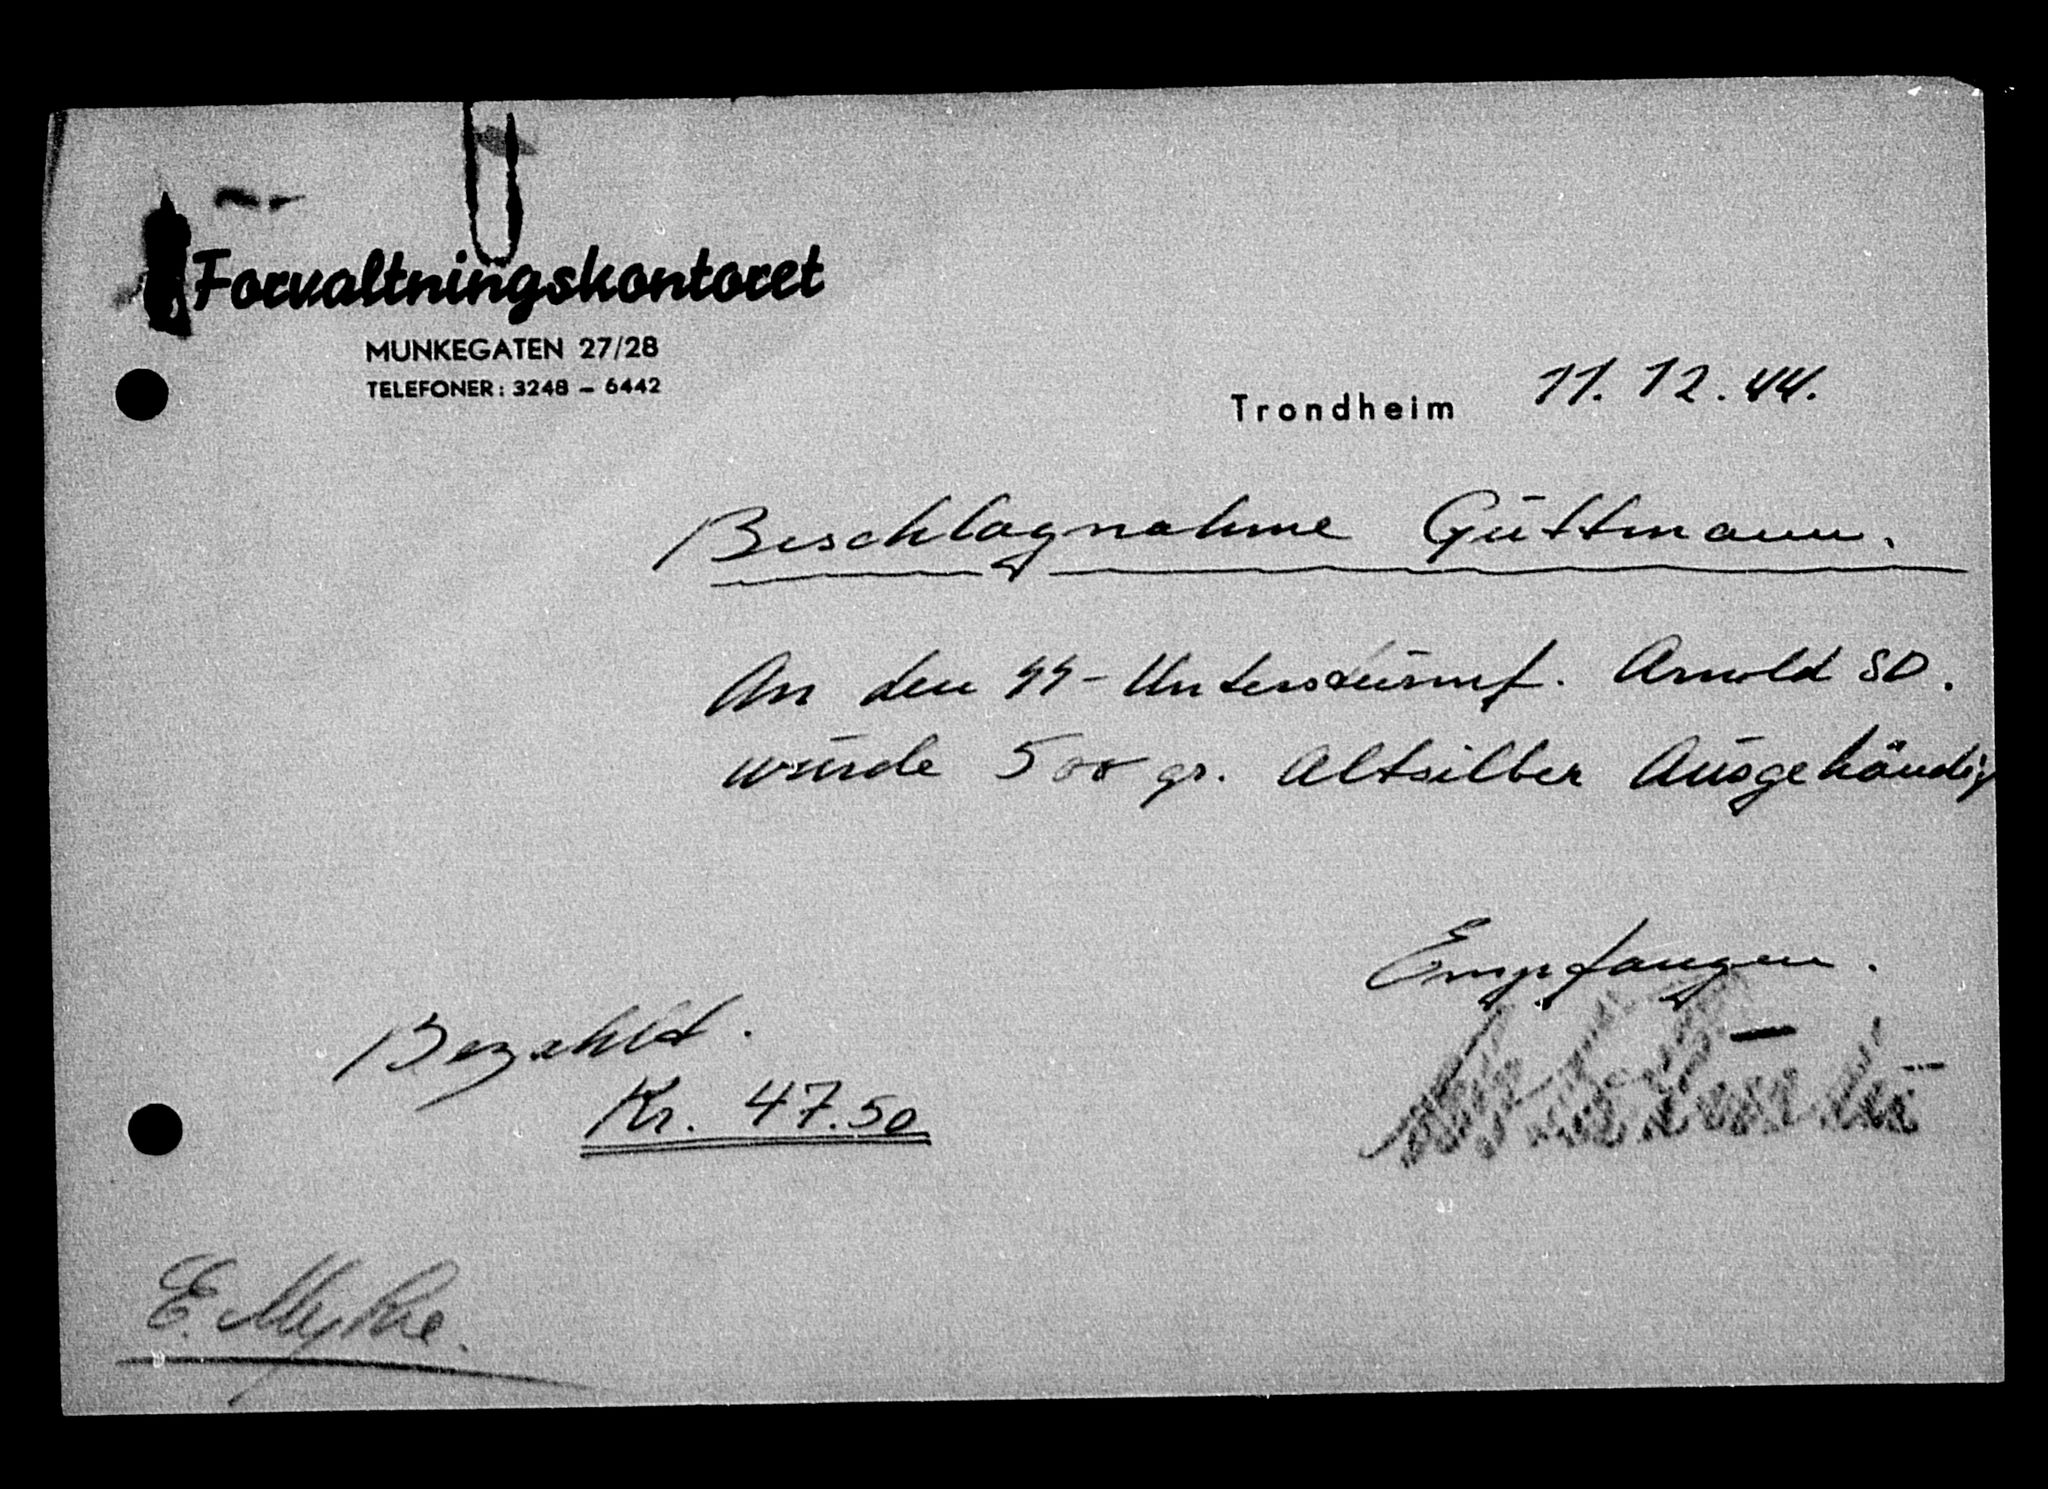 Forvaltningskontoret
MUNKEGATEN 27/28
TELEFONER: 3248 – 6442
Trondheim 11. 12. 44.
Beschlagnahme Guttmann.
An den SS-Untersturmf. Arnold SD.
wurde 500 gr. Altsilber Ausgehändig
Empfangen.
Bezahlt.
Kr. 47.50